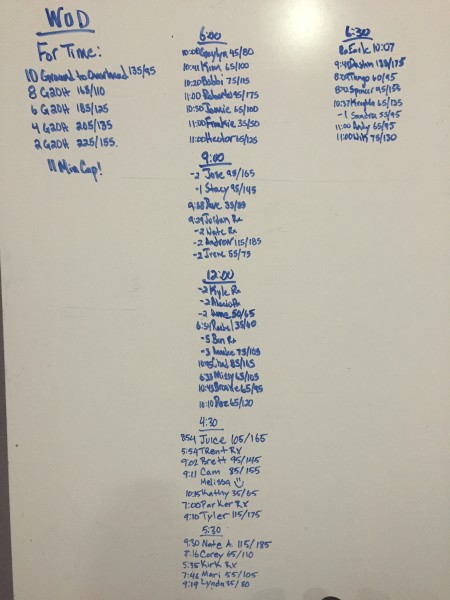 WOD
For Time:
10 Ground to Overhead 135/95
8 G2OH 165/110
6 G2OH 185/125
4 G2OH 205/135
2 G2OH 225/155
11 Min Cap!
6:00
10:41 Kim 65/100
10:20 Bobbi 75/115
11:00 Roberto 95/175
10:50 Jamie 65/100
11:00 Frankie 35/50
11:00 Hector 65/125
9:00
-2 Jose 95/165
-1 Stacy 95/145
Dave 35/85
9:29 Jordan Rx
-2 Nate Rx
-2 Andrew 115/185
-2 Irene 55/75
12:00
-2 Kyle Rx
-2
-2 50/65
Rachel 35/40
-5 Ben Rx
-3 75/105
85/115
6:33 Missy 65/105
10:43 Brooke 65/95
10:10 65/120
4:30
8:54 Juice 105/165
5:54 Trent RX
9:02 Brett 95/145
9:11 Cam 85/155
Melissa
10:15 Kathy 35/65
7:00 Parker RX
9:10 Tyler 115/175
5:30
9:30 Nate A. 115/185
8:16 Corey 65/110
5:35 Kirk RX
7:46 Mari 55/105
9:19 Lynda 35/80
6:30
Erik 10:07
9:40 Dustin 135/175
Tango 60/95
Spencer 95/155
10:37 Kemble 65/125
-1 Sandra 55/95
11:00 Andy 65/95
11:00 75/130